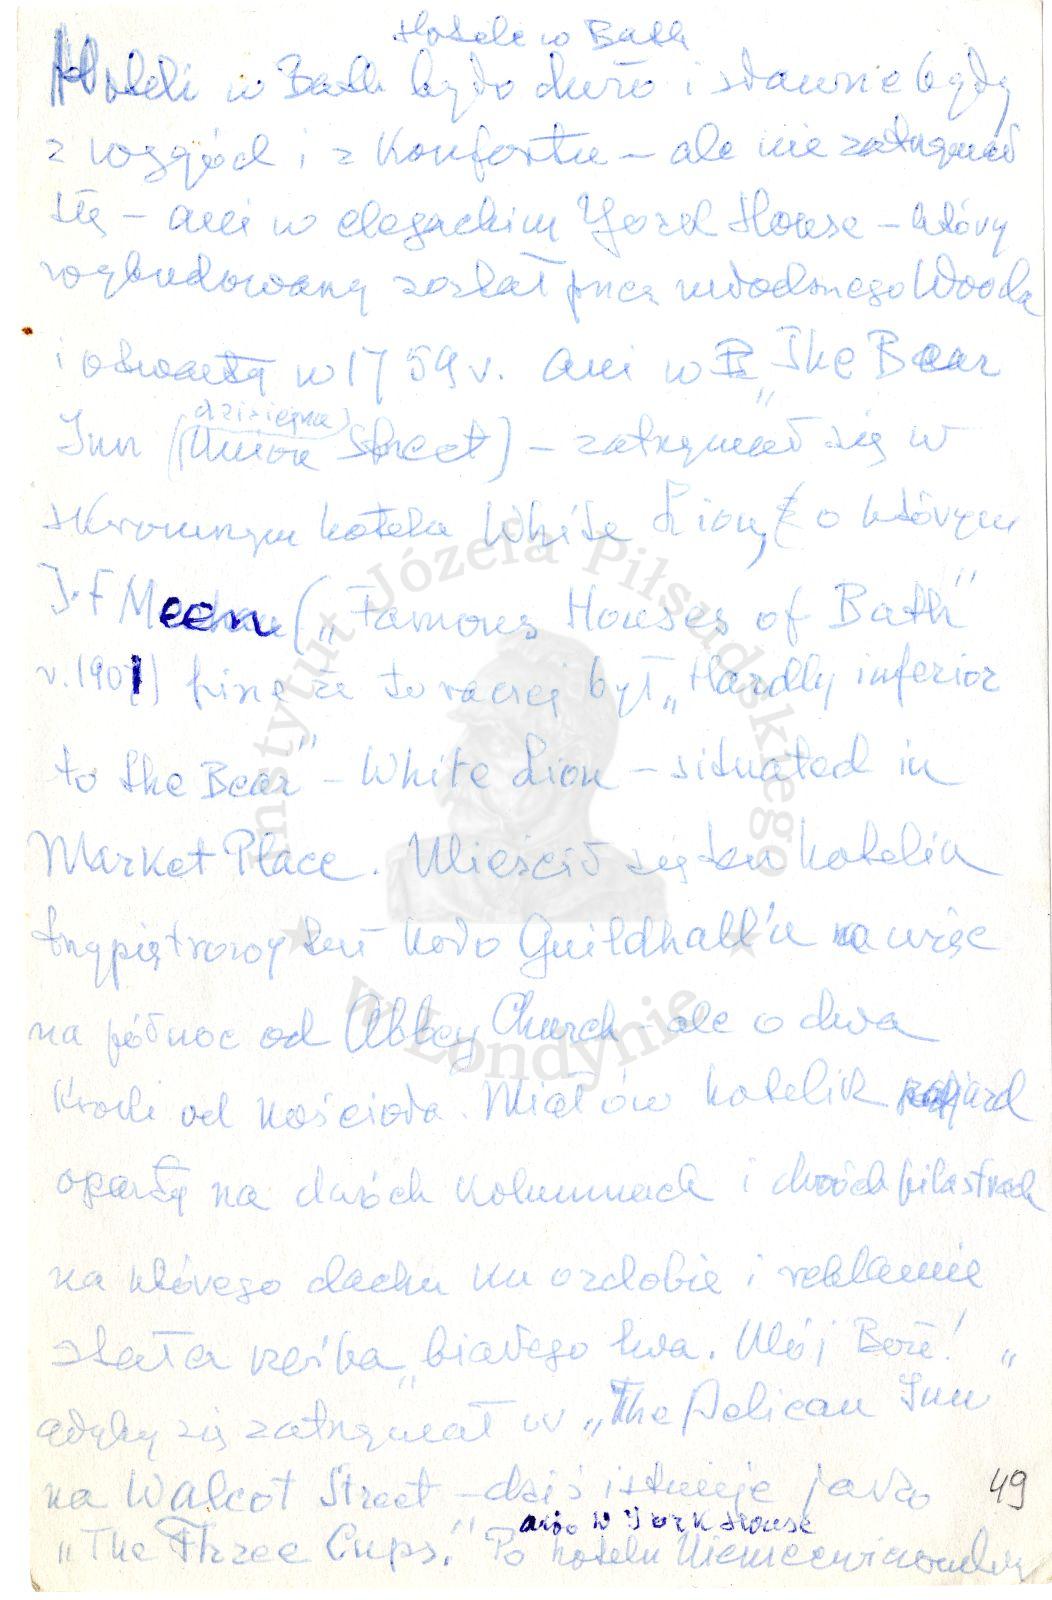 Hotele w Bath
Hoteli w Bath było dużo i sławne były
z wygód i z Konfortu – ale nie zatrzymał
się – ani w elegackim York House – który
wybudowany został przez młodszego Wooda
i otwarty w 1759 r. ani w "The Bear
Inn (dzisiejsza Union Street) – zatrzymał się w
skromnym hotelu White Lion, o którym
J.F Meehn („Famous Houses of Bath"
r. 1901) pisze że to raczej był „Hardly inferior
to the Bear" – White Lion – situated in
Market Place. Mieścił się ten hotelik
trzypiętrowy tuż koło Guildhall'u a więc
na północ od Abbey Church – ale o dwa
kroki od kościoła. Miał ów hotelik zajazd
oparty na dwóch kolumnach i dwóch pilastrach
na którego dachu ku ozdobie i reklamie
stała rzeźba „białego lwa. Mój Boże!
gdyby się zatrzymał w „The Pelican Inn"
na Walcot Street – dziś istnieje jako
„The Three Cups." albo w York House
Po hotelu Niemcewiczowskim
49
Instytut Józefa Piłsudskiego
w Londynie